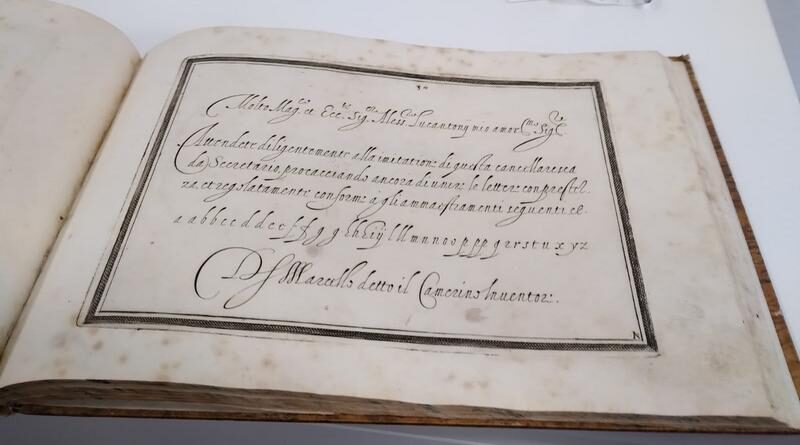 Molto Mag.co et Ecc.te Sig. Aless.dro Lucantonij mio amor.mo Sig.re
Attendete diligentemente alla imitation: di questa cancellaresca
da Secretario, procacciando ancora di unire le lettere con prestez.
za, et regolatamente conforme à gli ammaestramenti seguenti cl.
a a b b c c d d e e f f g g h h i ij l ll m n n o o p p p q r r s t u x y z
D S Marcello detto il Camerino Inventor:.
N